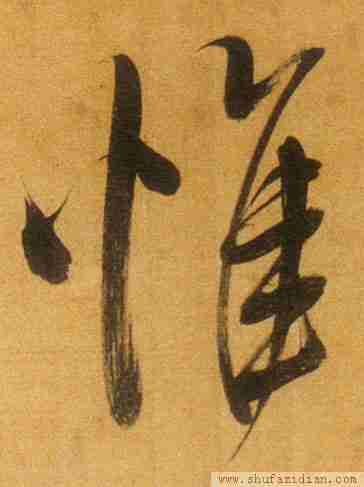 惟
www.shufazidian.com